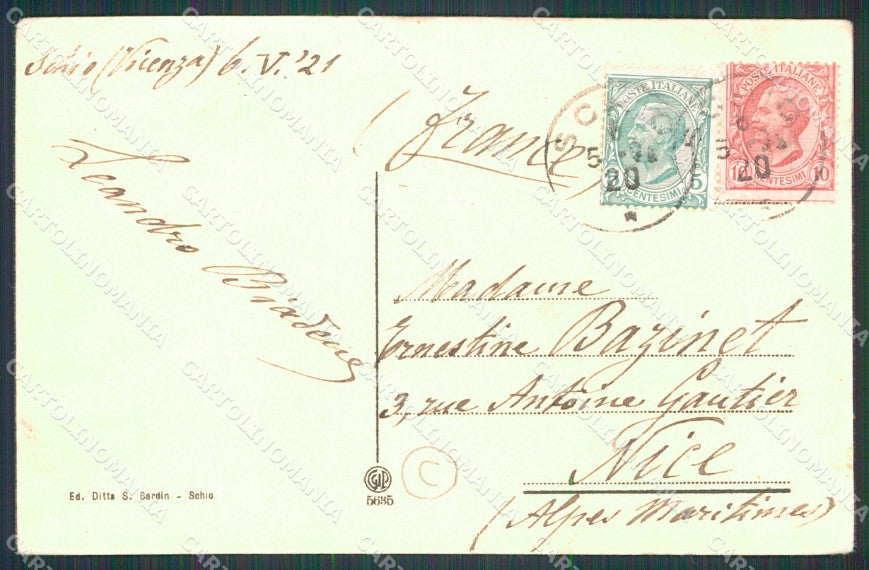 Schio (Vicenza) 6.V.'21
(France)
POSTE ITALIANE
5
CENTESIMI
POSTE ITALIANE
10 10
CENTESIMI
SC
5
20
5
20
Leandro Biadene
Madame
Ernestine Bazinet
3, rue Antoine Gautier
Nice
(Alpes Maritimes)
Ed. Ditta S. Bardin - Schio
5635
C
CARTOLINOMANIA